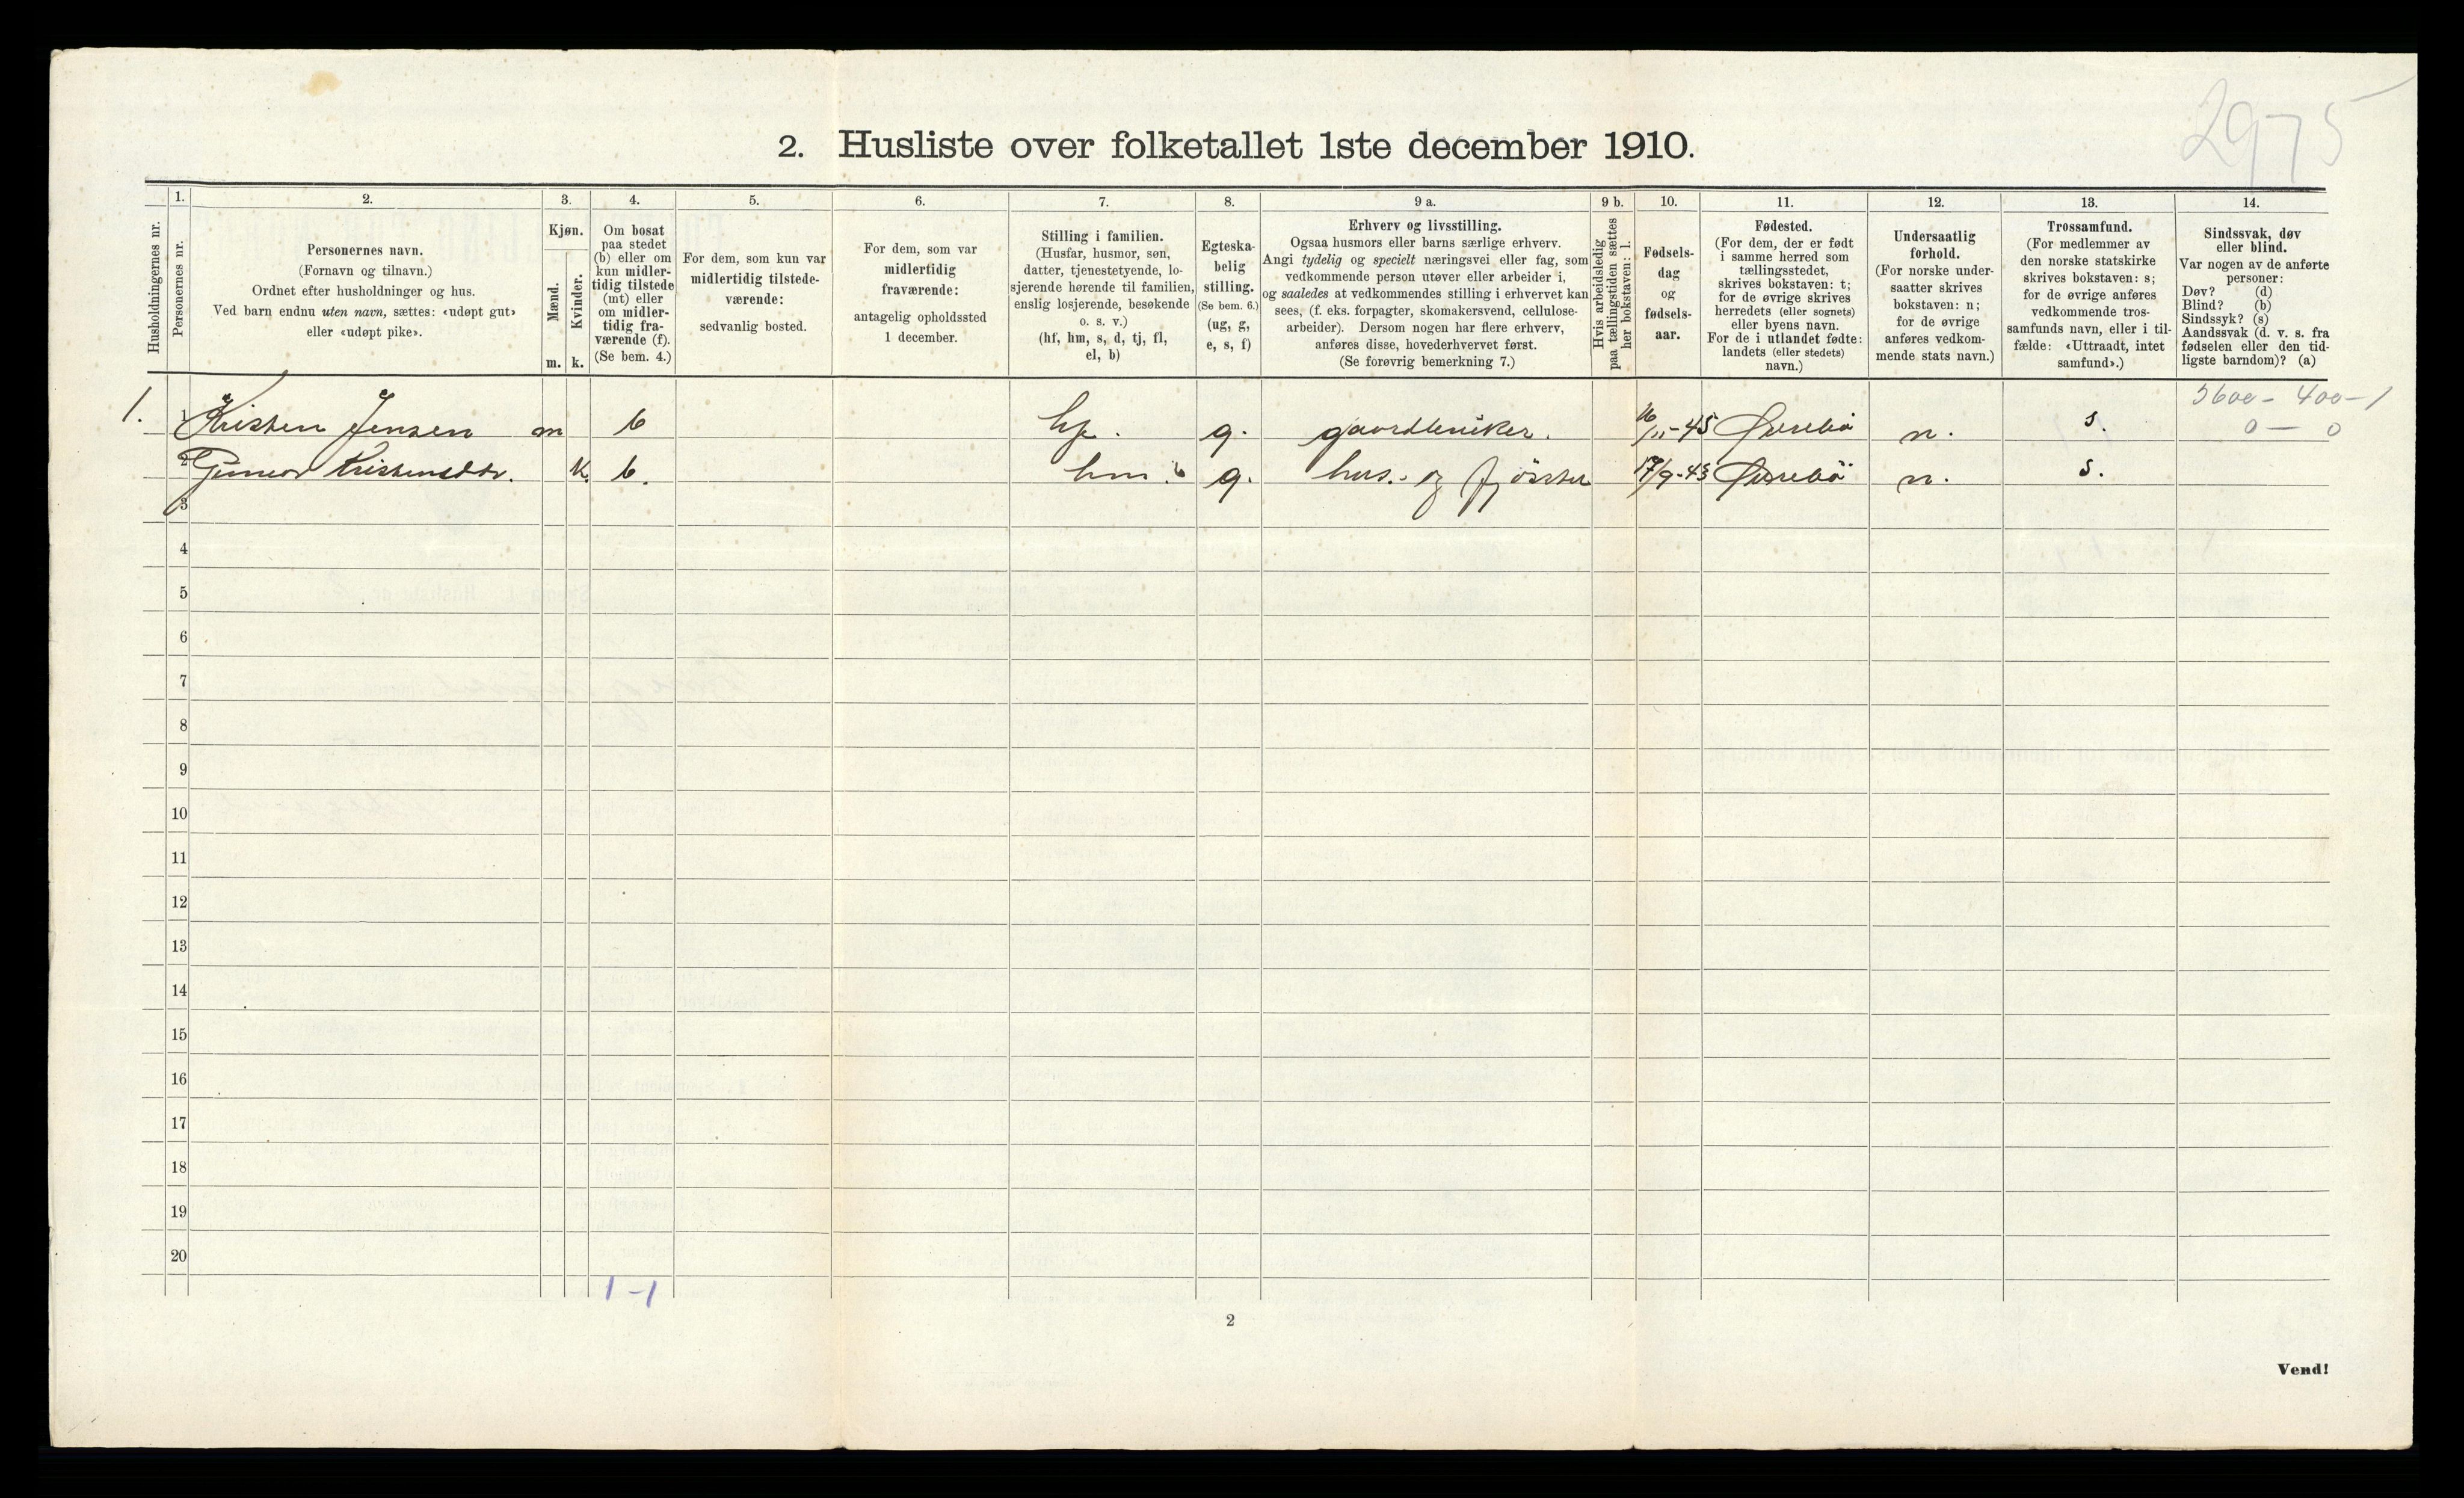 2975
2. Husliste over folketallet 1ste december 1910.
Husholdningernes nr.
1.
Personernes nr.
2.
Personernes navn.
(Fornavn og tilnavn.)
Ordnet efter husholdninger og hus.
Ved barn endnu uten navn, sættes: «udøpt gut»
eller «udøpt pike».
3.
Kjøn.
Mænd.
Kvinder.
m. k.
4.
Om bosat
paa stedet
(b) eller om
kun midler-
tidig tilstede
(mt) eller
om midler-
tidig fra-
værende (f).
(Se bem. 4.)
5.
For dem, som kun var
midlertidig tilstede-
værende:
sedvanlig bosted.
6.
For dem, som var
midlertidig
fraværende:
antagelig opholdssted
1 december.
7.
Stilling i familien.
(Husfar, husmor, søn,
datter, tjenestetyende, lo-
sjerende hørende til familien,
enslig losjerende, besøkende
o. s. v.)
(hf, hm, s, d, tj, fl,
el, b)
8.
Egteska-
belig
stilling.
(Se bem. 6.)
(ug, g,
e, s, f)
9 a.
Erhverv og livsstilling.
Ogsaa husmors eller barns særlige erhverv.
Angi tydelig og specielt næringsvei eller fag, som
vedkommende person utøver eller arbeider i,
og saaledes at vedkommendes stilling i erhvervet kan
sees, (f. eks. forpagter, skomakersvend, cellulose-
arbeider). Dersom nogen har flere erhverv,
anføres disse, hovederhvervet først.
(Se forøvrig bemerkning 7.)
9 b.
Hvis arbeidsledig
paa tællingstiden sættes
her bokstaven: l.
10.
Fødsels-
dag
og
fødsels-
aar.
11.
Fødested.
(For dem, der er født
i samme herred som
tællingsstedet,
skrives bokstaven: t;
for de øvrige skrives
herredets (eller sognets)
eller byens navn.
For de i utlandet fødte:
landets (eller stedets)
navn.)
12.
Undersaatlig
forhold.
(For norske under-
saatter skrives
bokstaven: n;
for de øvrige
anføres vedkom-
mende stats navn.)
13.
Trossamfund.
(For medlemmer av
den norske statskirke
skrives bokstaven: s;
for de øvrige anføres
vedkommende tros-
samfunds navn, eller i til-
fælde: «Uttraadt, intet
samfund».)
14.
Sindssvak, døv
eller blind.
Var nogen av de anførte
personer:
Døv? (d)
Blind? (b)
Sindssyk? (s)
Aandssvak (d. v. s. fra
fødselen eller den tid-
ligste barndom)? (a)
5600 - 400 - 1
0 — 0
1. 1 Kristen Jensen m b hf. g. gaardbruker. 16/11-45 Øvrebö n. s.
2 Gunvor Kristensdtr. k. b. hm. g. hus- og fjösstel 17/9-43 Øvrebö n. s.
3
4
5
6
7
8
9
10
11
12
13
14
15
16
17
18
19
20
1 - 1
2
Vend!